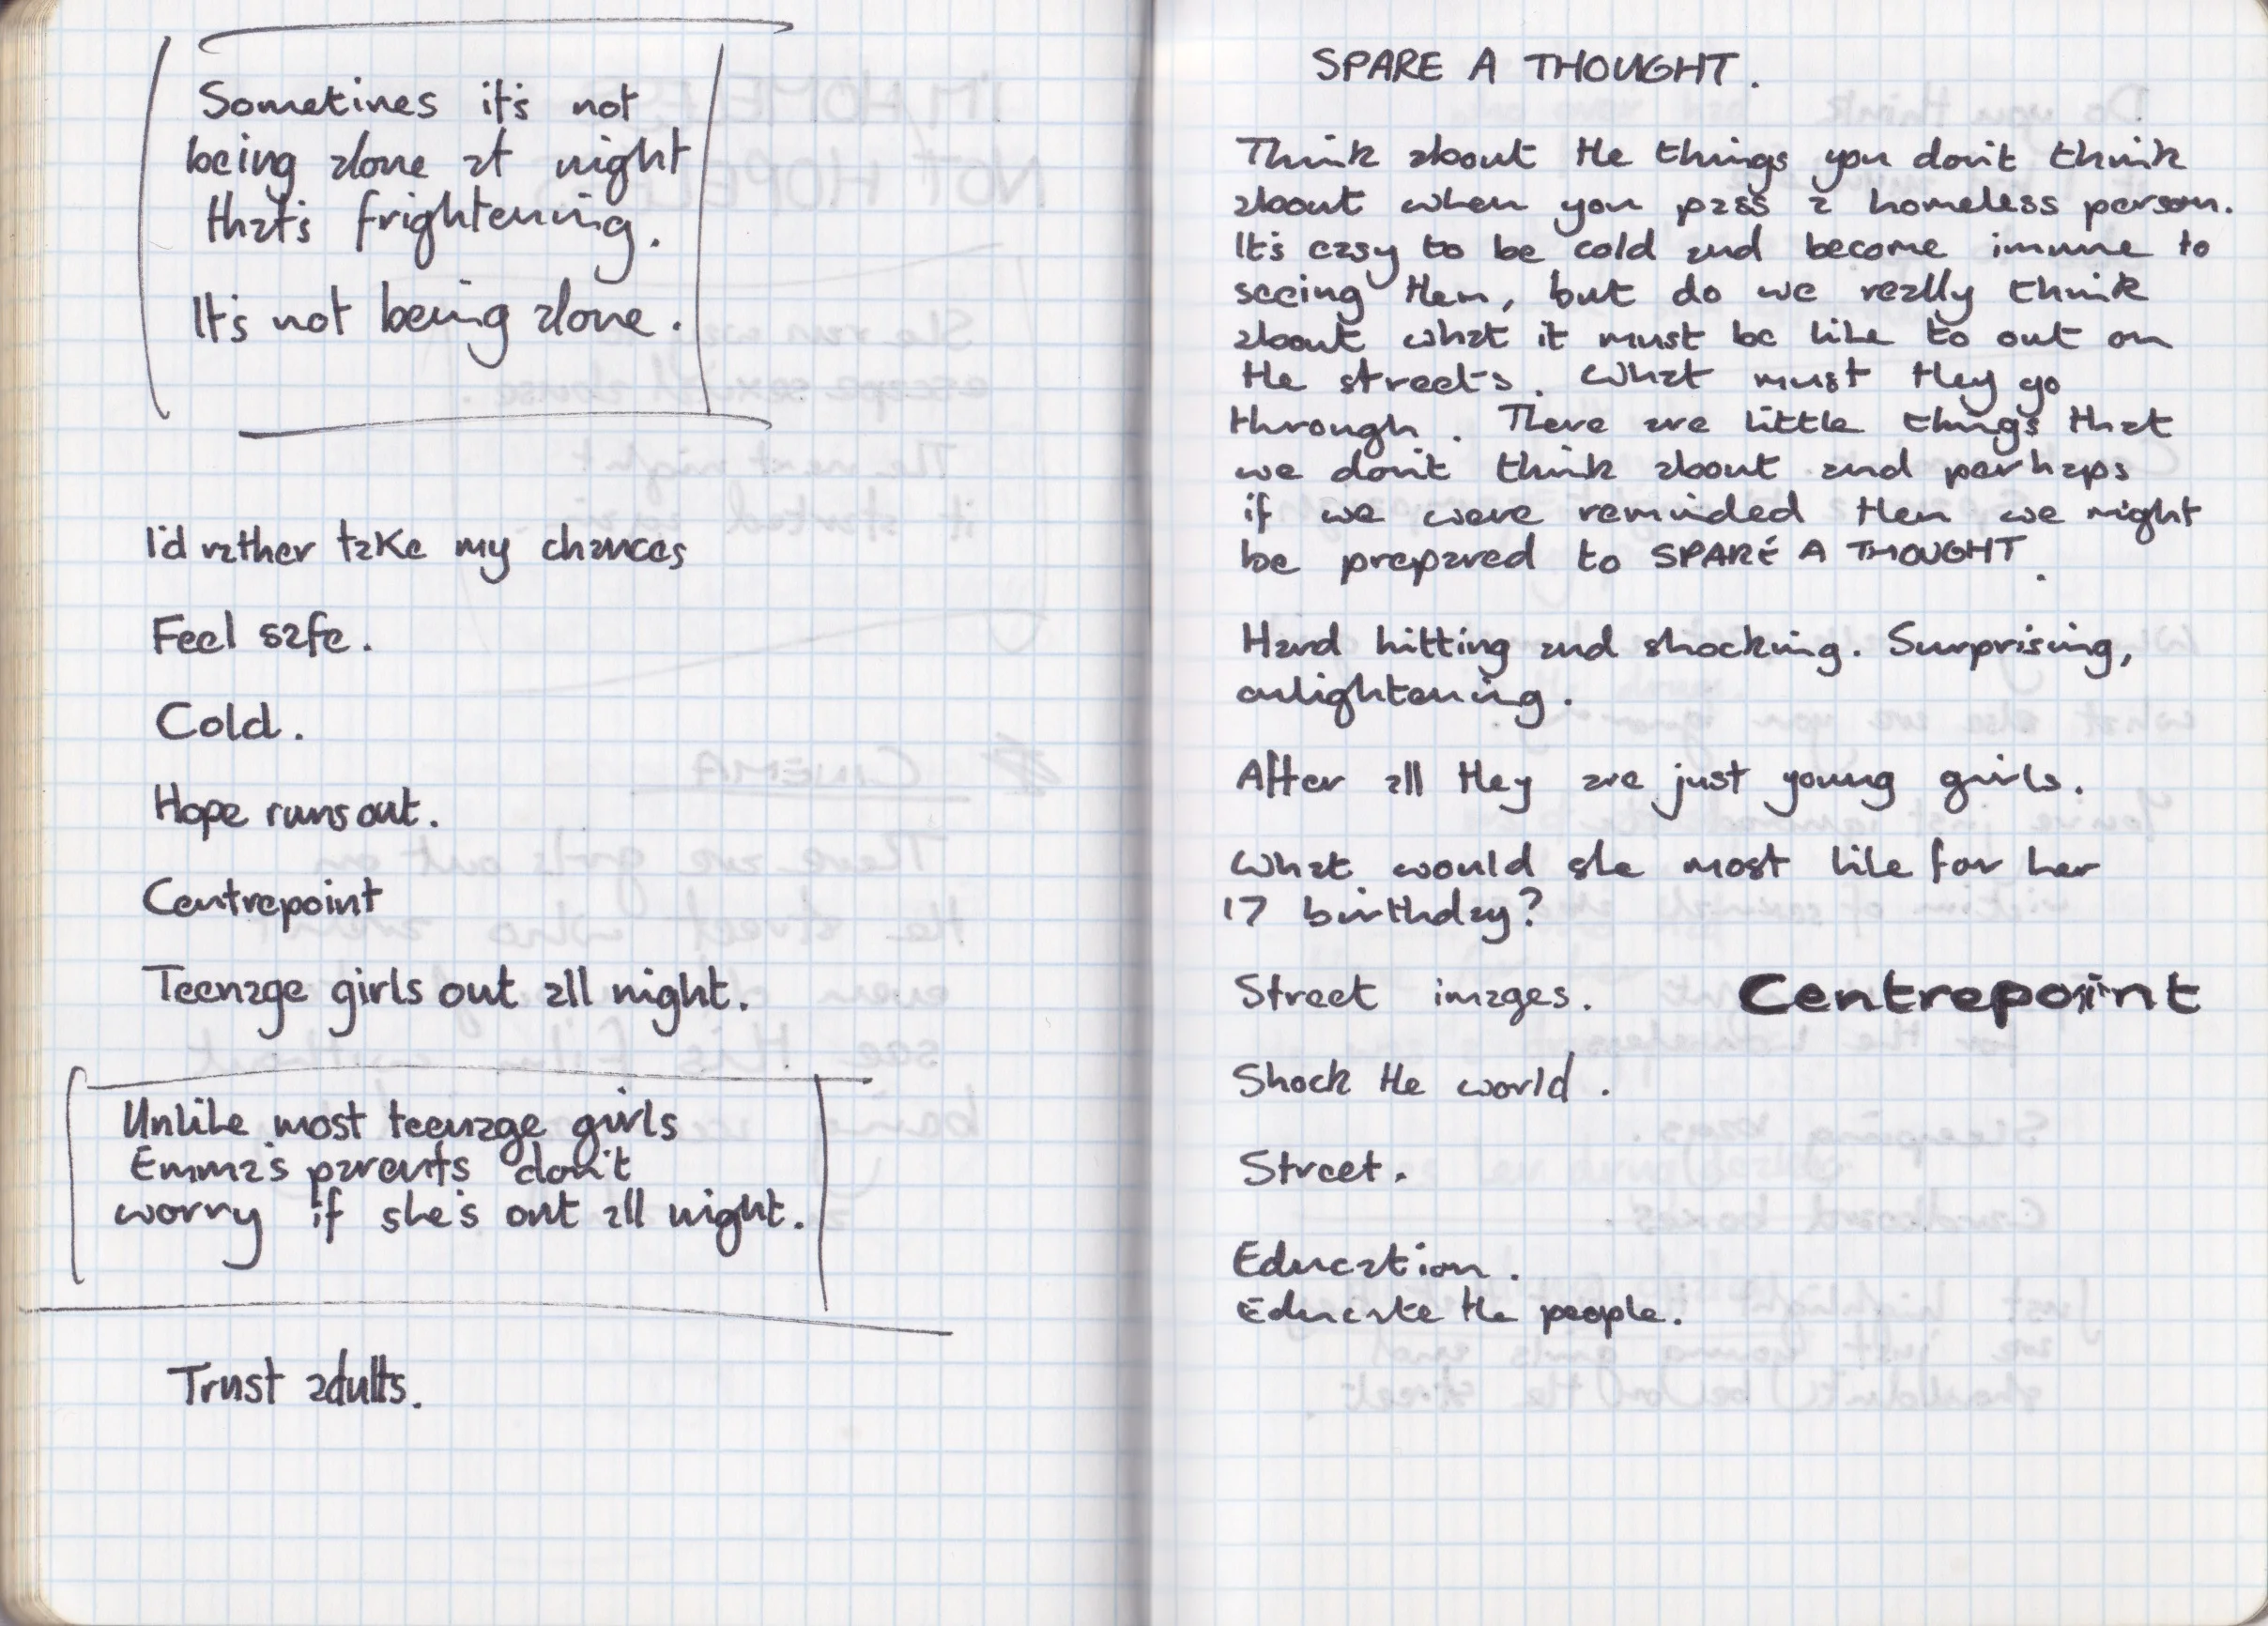 Sometimes it's not
being alone at night
that's frightening.
It's not being alone.
I'd rather take my chances
Feel safe.
Cold.
Hope runs out.
Centrepoint
Teenage girls out all night.
Unlike most teenage girls
Emma's parents don't
worry if she's out all night.
Trust adults.
SPARE A THOUGHT.
Think about the things you don't think
about when you pass a homeless person.
It's easy to be cold and become immune to
seeing them, but do we really think
about what it must be like to out on
the streets. What must they go
through. There are little things that
we don't think about and perhaps
if we were reminded then we might
be prepared to SPARE A THOUGHT.
Hard hitting and shocking. Surprising,
enlightening.
After all they are just young girls.
What would she most like for her
17 birthday?
Street images. Centrepoint
Shock the world.
Street.
Education.
Educate the people.